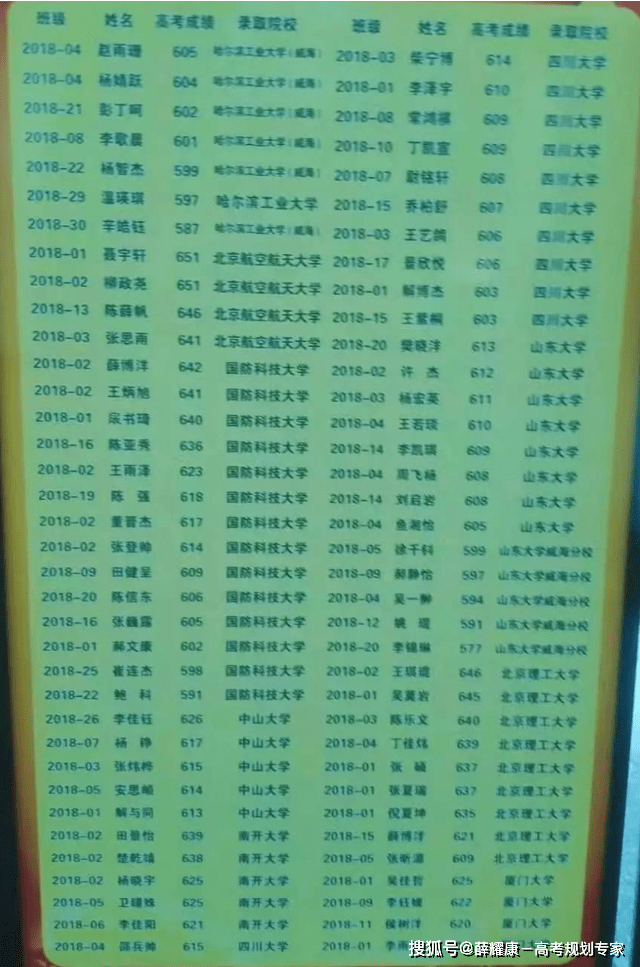 班级 姓名 高考成绩 录取院校 班级 姓名 高考成绩 录取院校
2018-04 赵雨珊 605 哈尔滨工业大学(威海) 2018-03 柴宁博 614 四川大学
2018-04 杨婧跃 604 哈尔滨工业大学(威海) 2018-01 李泽宇 610 四川大学
2018-21 彭丁呵 602 哈尔滨工业大学(威海) 2018-08 常鸿禧 609 四川大学
2018-08 李敬晨 601 哈尔滨工业大学(威海) 2018-10 丁凯宣 609 四川大学
2018-22 杨智杰 599 哈尔滨工业大学(威海) 2018-07 尉铭轩 608 四川大学
2018-29 温瑛琪 597 哈尔滨工业大学 2018-15 乔柏舒 607 四川大学
2018-30 辛皓钰 587 哈尔滨工业大学(威海) 2018-03 王艺鸽 606 四川大学
2018-01 聂宇轩 651 北京航空航天大学 2018-17 景欣悦 606 四川大学
2018-02 柳政尧 651 北京航空航天大学 2018-01 解博杰 603 四川大学
2018-13 陈薛帆 646 北京航空航天大学 2018-15 王紫桐 603 四川大学
2018-03 张思雨 641 北京航空航天大学 2018-20 樊晓洋 613 山东大学
2018-02 薛博洋 642 国防科技大学 2018-02 许杰 612 山东大学
2018-02 王炳旭 641 国防科技大学 2018-03 杨宏英 611 山东大学
2018-01 书琦 640 国防科技大学 2018-04 王若琰 610 山东大学
2018-16 陈亚秀 636 国防科技大学 2018-14 李凯琪 609 山东大学
2018-02 王雨泽 623 国防科技大学 2018-04 周飞杨 608 山东大学
2018-19 陈强 618 国防科技大学 2018-14 刘启岩 608 山东大学
2018-02 董晋杰 617 国防科技大学 2018-04 鱼湘怡 605 山东大学
2018-02 张登帅 614 国防科技大学 2018-05 徐千科 599 山东大学威海分校
2018-09 田健呈 609 国防科技大学 2018-09 郝静怡 597 山东大学威海分校
2018-20 陈信东 606 国防科技大学 2018-04 吴一翀 594 山东大学威海分校
2018-16 张巍露 605 国防科技大学 2018-12 姚 591 山东大学威海分校
2018-01 郝文康 602 国防科技大学 2018-20 李锦琳 577 山东大学威海分校
2018-25 崔连杰 598 国防科技大学 2018-02 王琪琨 646 北京理工大学
2018-22 鲍科 591 国防科技大学 2018-01 吴昊岩 645 北京理工大学
2018-26 李佳钰 626 中山大学 2018-03 陈乐文 640 北京理工大学
2018-07 杨铮 617 中山大学 2018-04 丁佳炜 639 北京理工大学
2018-03 张炜桦 615 中山大学 2018-01 张 637 北京理工大学
2018-05 安思 614 中山大学 2018-01 张夏瑞 637 北京理工大学
2018-01 解与同 613 中山大学 2018-01 倪夏坤 635 北京理工大学
2018-02 田景怡 639 南开大学 2018-15 薛博洋 621 北京理工大学
2018-02 楚乾靖 638 南开大学 2018-05 张昕 609 北京理工大学
2018-02 杨晓宇 625 南开大学 2018-01 吴佳哲 625 厦门大学
2018-05 卫 625 南开大学 2018-09 李钰媛 622 厦门大学
2018-06 李佳阳 621 南开大学 2018-11 侯树洋 620 厦门大学
2018-04 邵兵帅 615 四川大学 2018-01 李雨
搜狐号@薛耀康一高考规划专家